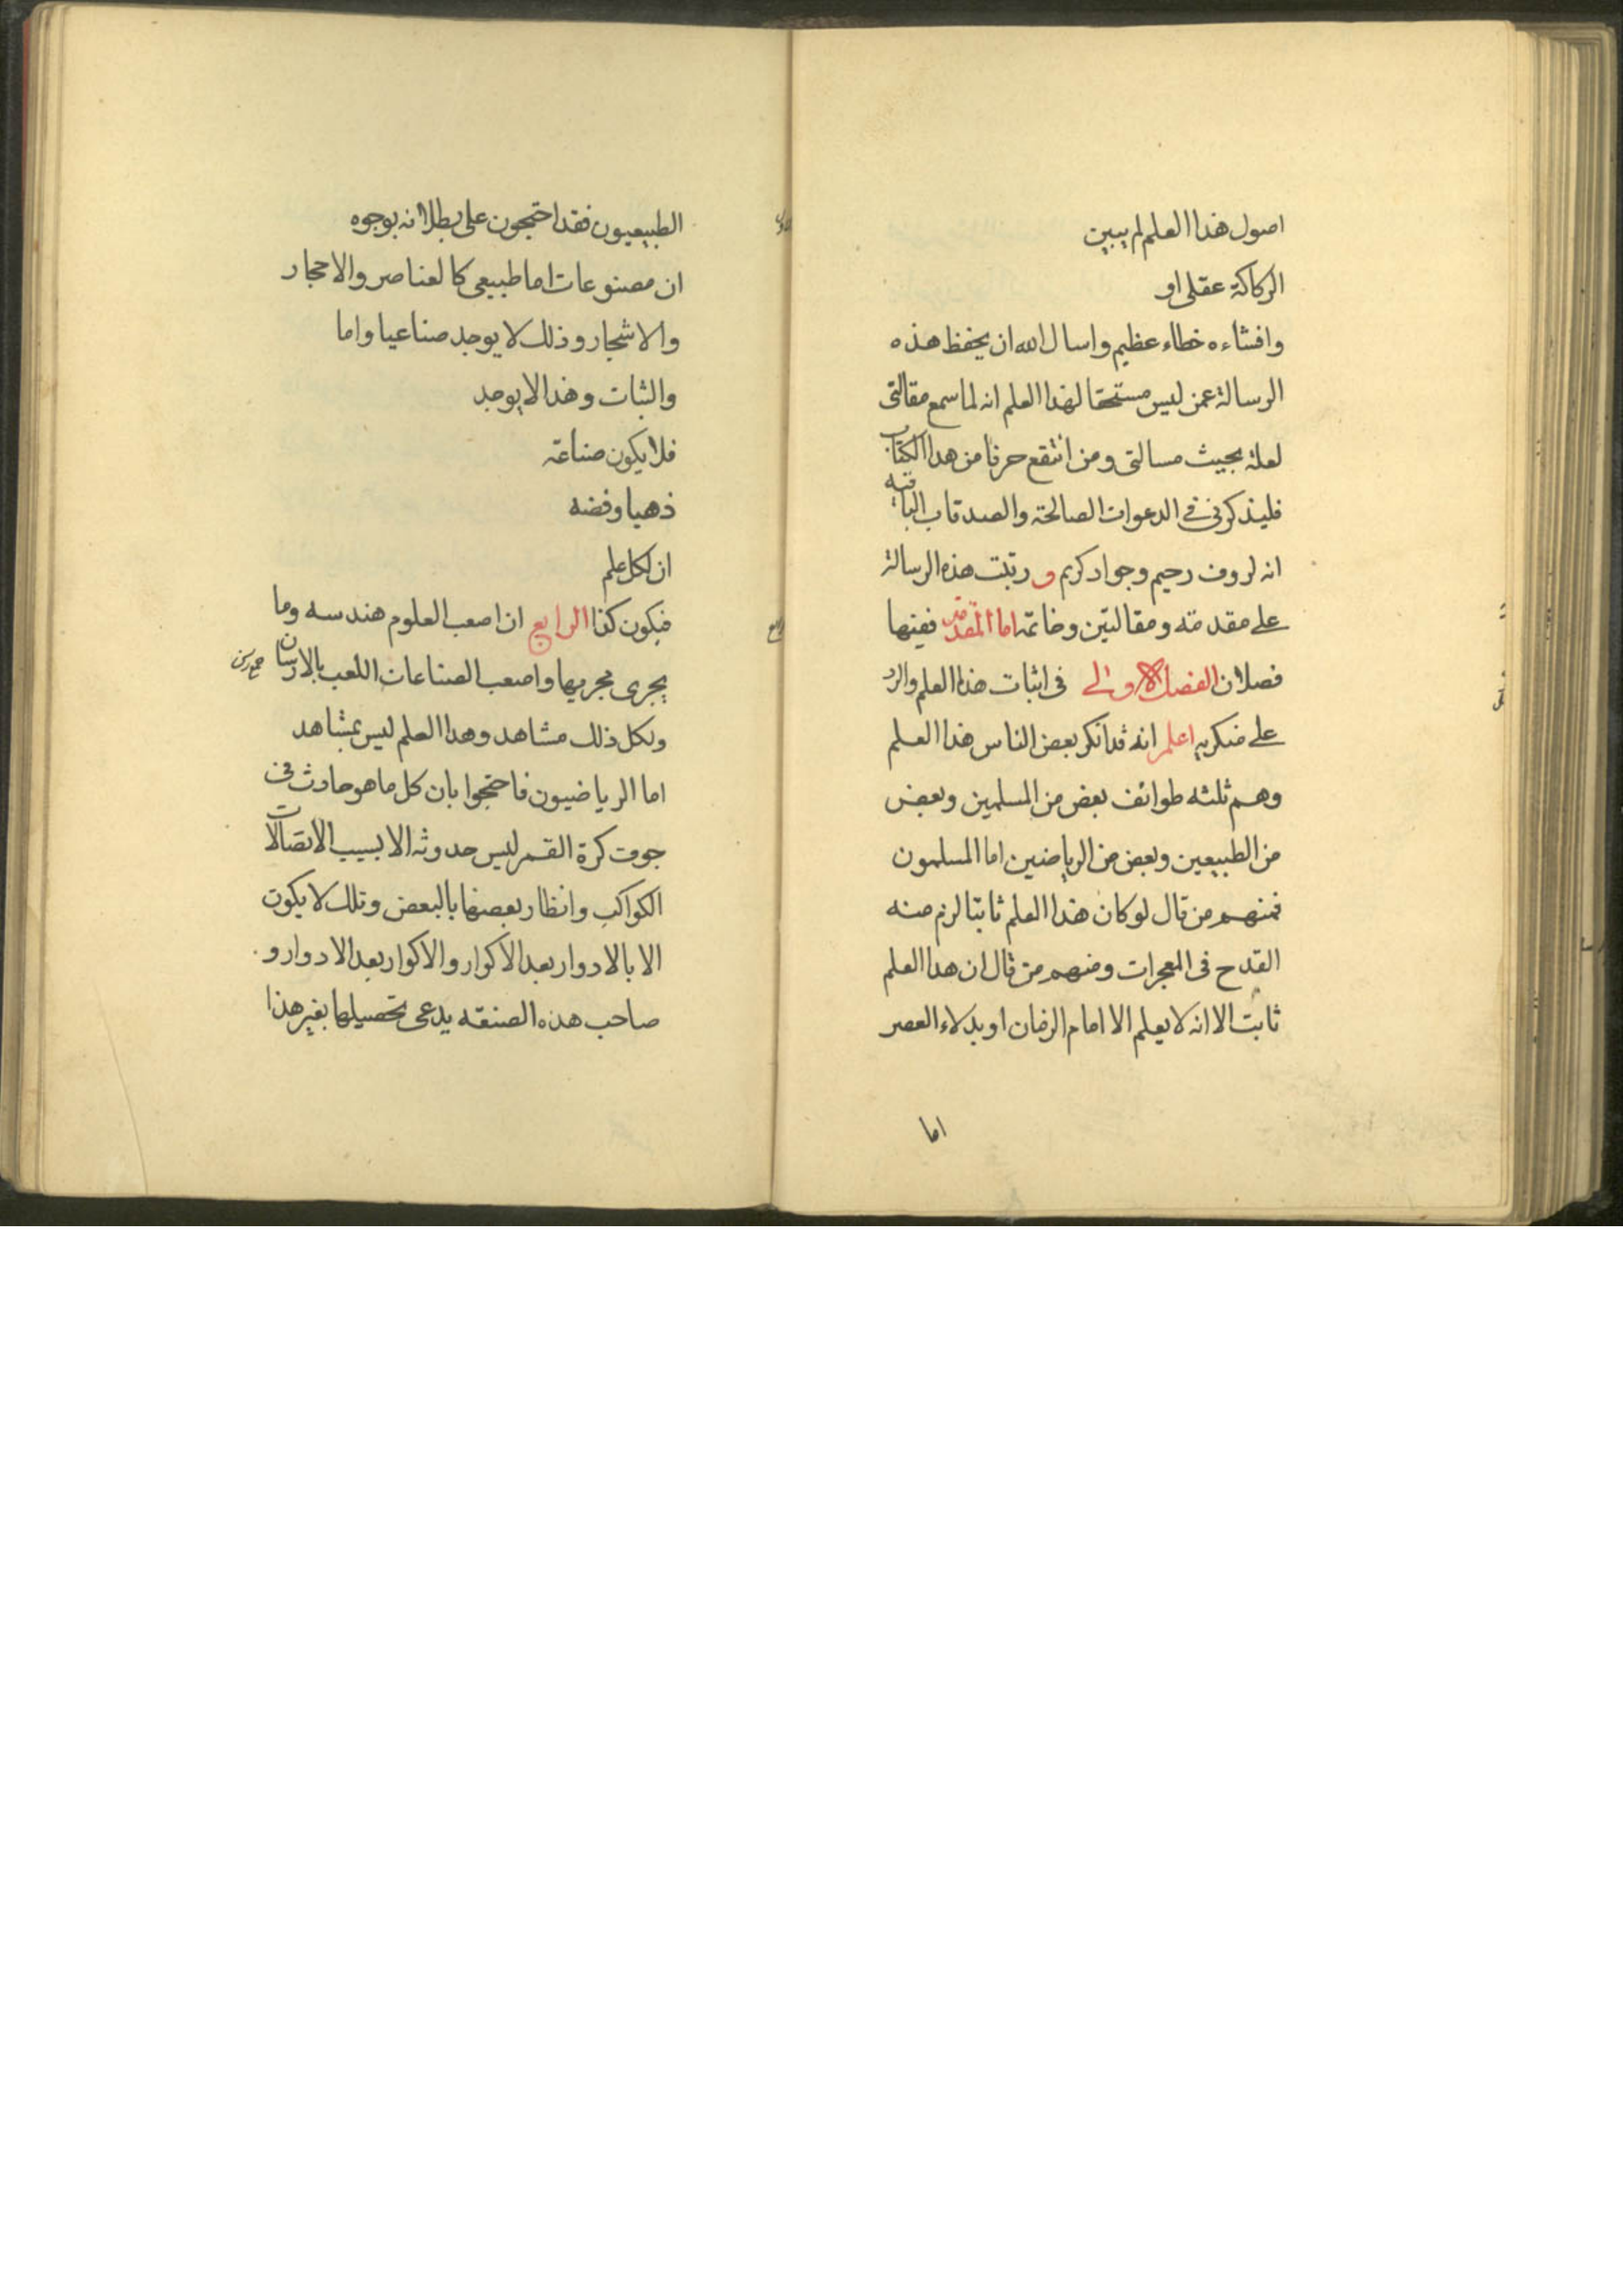 اصول هذا العلم لم يبين
الركاكة عقلى او
وافشاءه خطاء عظيم واسال الله ان يحفظ هذه
الرسالة عمن ليس مستحقا لهذا العلم انه لما سمع مقالتى
لعلة بجيث مسالتى ومن انتقع حرفا من هدا الكتاب
فليذكرنى فى الدعوات الصالحة والصدقاب الباقيه
انه لروف رحيم وجواد كريم و رتبت هذه الرسالة
على مقدمته ومقالتين وخاتمة اما المقدمة ففيها
فصلان الفصل الاولى فى اثبات هذا العلم والرد
على منكريه اعلم انه قد انكر بعض الناس هذا العلم
وهم ثلثه طوائف بعض من المسلمين وبعض
من الطبيعين وبعض من الرياضين اما المسلمون
فمنهم من قال لو كان هذا العلم ثابتا لزم منه
القدح فى المعجرات ومنهم من قال ان هدا العلم
ثابت الا انه لا يعلم الا امام الزمان او بدلاء العصر
اما
الطبيعيون فقد احتججون على بطلانه بوجوه
ان مصنوعات اما طبيعى كالعناصر والاحجار
والاشجار وذلك لا يوجد صناعيا واما
والثبات وهذا لا يوجد
فلا يكون صناعة
ذهبا وفضه
ان لكل علم
فيكون كذا الرابع ان اصعب العلوم هندسه وما
يجرى مجريها واصعب الصناعات اللعب بالارسان
ولكل ذلك مشاهد وهدا العلم ليس بمشاهد
اما الرياضيون فاحتجوا بان كل ما هو حادث فى
جوف كرة القمر ليس حدوثه الا بسبب الاتصالات
الكواكب وانظار بعضها بالبعض وتلك لا يكون
الا بالادوار بعد الاكوار والاكوار بعد الادوار و
صاحب هذه الصنعة يدعى تحصيلها بغير هذا